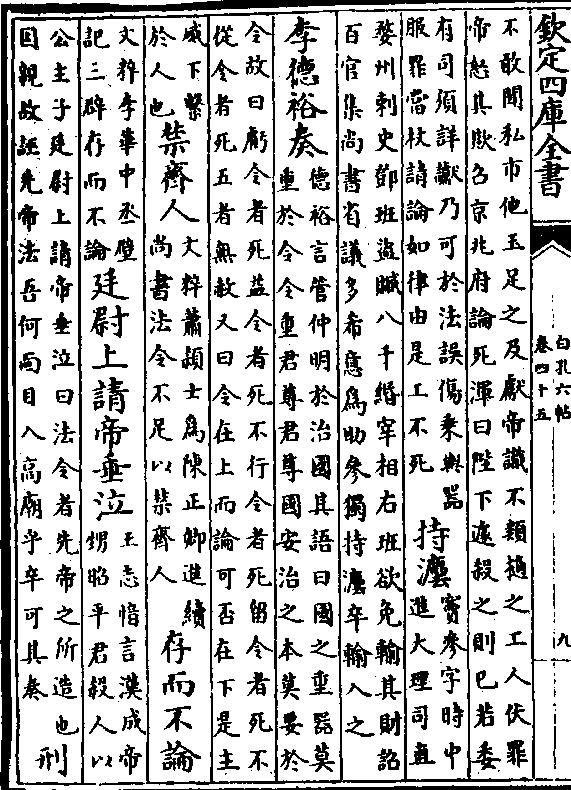 欽定四庫全書
白孔六帖
卷四十五
九
不敢聞私市他玉足之及獻帝識不類擿之工人伏罪
帝怒其欺詔京兆府論死渾曰陛下遽殺之則已若委
有司須詳讞乃可於法誤傷乘輿器
服罪當杖請論如律由是工不死
持灋
竇參字時中
進大理司直
婺州刺史鄧班盜贓八千緡宰相右班欲免輸其財詔
百官集尚書省議多希意為助參獨持灋卒輸入之
李德裕奏
德裕言管仲明於治國其語曰國之重器莫
重於令令重君尊君尊國安治之本莫要於
令故曰虧令者死益令者死不行令者死留令者死不
從令者死五者無赦又曰令在上而論可否在下是主
威下繫
於人也
禁齊人
文粹蕭穎士為陳正卿進續
尚書法令不足以禁齊人
存而不論
文粹李華中丞壁
記三辟存而不論
廷尉上請帝垂泣
王志愔言漢成帝
甥昭平君殺人以
公主子廷尉上請帝垂泣曰法令者先帝之所造也
因親故誣先帝法吾何面目入高廟乎卒可其奏
刑